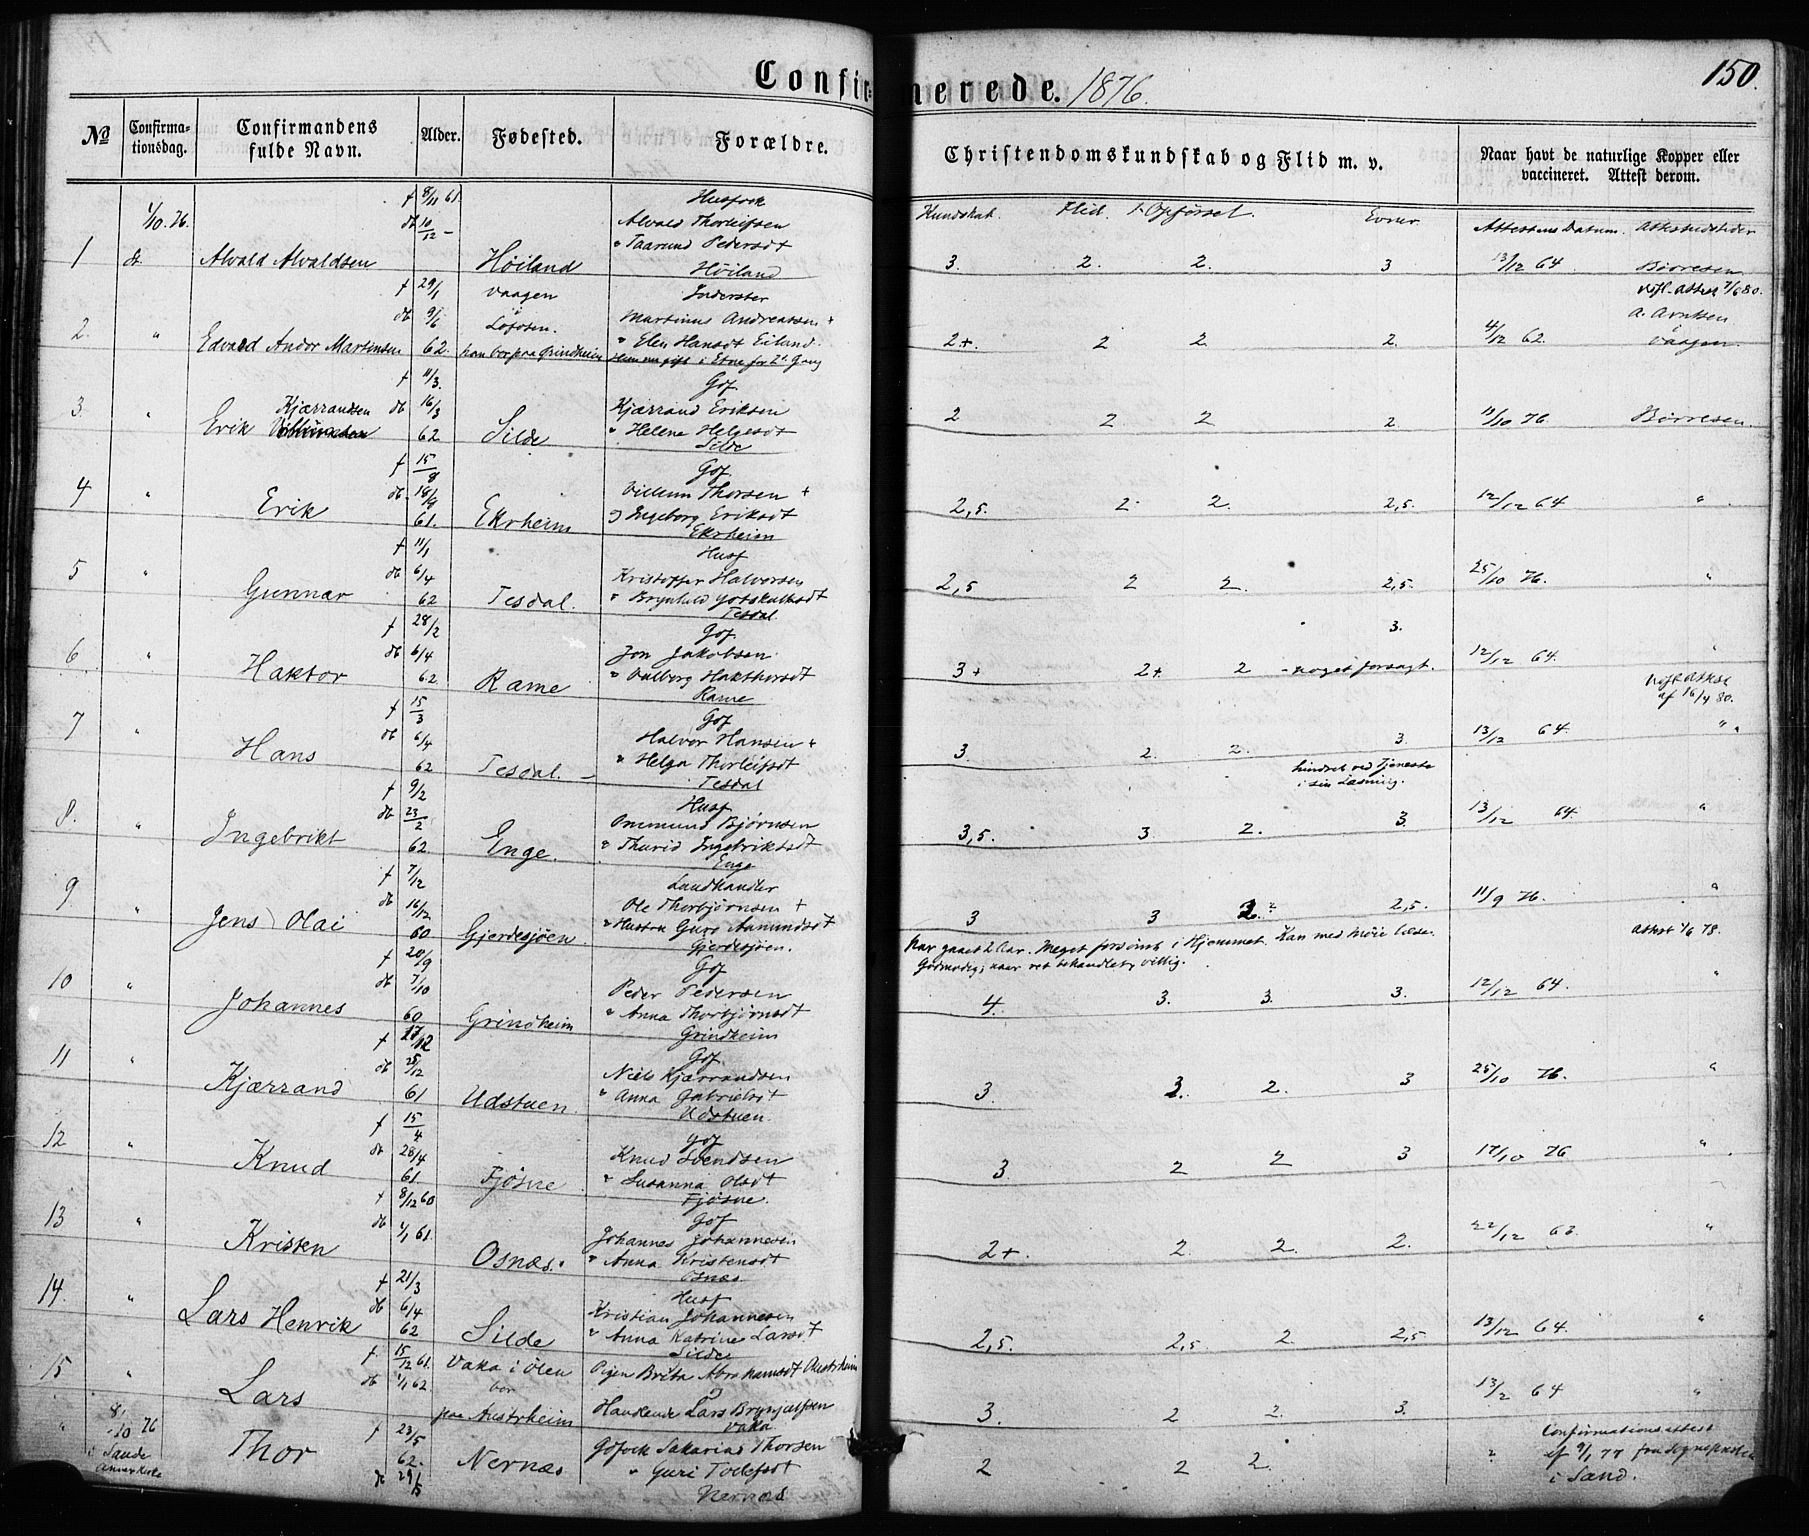 Confirmerede. 1876.
150.
No
Confirma-
tionsdag.
Confirmandens
fulde Navn.
Alder.
Fødested.
Forældre.
Christendomskundskab og Flid m. v.
Naar havt de naturlige Kopper eller
vaccineret. Attest derom.
Kundskab. Flid. Opførsel. Evner. Attestens Datum. Attestudsteder
1/10 76. f 8/11 61. Husfock
db 10/12 – Alvald Thorleifsen
1 Alvald Alvaldsen Høiland Taarund Pedersdt 3. 2. 2. 3 13/12 64. Børresen
Høiland
f 29/1 Vaagen Inderster Attest 7/6 80.
db 9/6 Lofoten. Martinus Andreassen + A. Arntsen
2. " Edvard Andor Martinsen 62. han bor paa Grindheim " Elen Hansdt Eiland 2+. 2 2. 2. 4/12 62. Vaagen.
Hun nu gift i Etne for 2. Gang
f 11/3. Gf.
3. " Kjærrandsen db 16/3 Kjærrand Eriksen 2 2 2 2 11/10 76. Børresen.
Erik 62 Silde " Helene Helgesdt
Silde
f 15/8 Gf.
4 " db. 18/9 Villum Thorsen + 2,5. 2. 2. 2,5. 12/12 64 "
Erik 61. Ekrheim Ingeborg Eriksdt
Ekrheim
f 11/1 Husf
5 " db 6/4 Kristoffer Halvorsen 2,5 2 2. 2,5. 25/10 76. "
Gunnar 62 Tesdal. " Brynhild Gotskalksdt
Tesdal
f 28/2 Gf. 3.
6 " db 6/4 Jon Jakobsen 3+ 2+. 2 – noget forsagt. 12/12 64. "
Haktor 62. Rame " Valborg Hakthorsdt
Rame Attest
af 16/4 80.
f 15/3 Gf
7 " db 6/4 Halvor Hansen + 3. 2. 2. 3. 13/12 64. " "
Hans 62 Tesdal. – " Helga Thorleifsdt
Tesdal hindret ved Tjeneste
i sin Læsning.
f 9/2 Husf
8. " db 23/2 Ommund Bjørnsen 3,5. 3. 2. 3. 13/12 64. "
Ingebrikt 62. Enge. " Thurid Ingebriktsdt
Enge
f 7/12 Landhandler
9 " db 16/12 Ole Thorbjørnsen + 3 3 2. 2,5. 11/9 76. "
Jens Olai 60. Gjerdesjøen. " Hustru Guro Aamundsdt
Gjerdesjøen.
har gaaet 2 Aar. Meget forsømt i Hjemmet. Kan med Møie læse. Attest 1/6 78.
Godmodig; naar ret behandlet, villig.
f 20/9 Gf
10 " db 7/10 Peder Pedersen 4. 3. 3. 3. 12/12 64. "
Johannes 60 Grindheim " Anna Thorbjørnsdt
Grindheim
f 17/12 Gf
11 " db 25/12 Niels Kjærrandsen 3. 3. 2. 3 25/10 76. "
Kjærrand 61 Udstuen. " Anna Gabrielsdt
Udstuen.
f 15/4 Gf
12 " db 28/4 Knud Svendsen 3. 2 2 3 17/10 76 "
Knud 61. Fjøsne " Susanna Olsdt
Fjøsne.
f 8/12 60 Gf
13 " db 1/1 61. Johannes Johannesen 2+. 2 2. 2. 22/12 63. "
Kristen Osnæs. " Anna Kristensdt
Osnæs
f 21/3 Husf
14. " db 6/4 Kristian Johannesen 2,5. 2,5. 2 2,5 13/12 64. "
Lars Henrik 62 Silde " Anna Katrine Larsdt
Silde
f 15/12 61. Vaka i Ølen Pigen Brita Abrahamsdt Austrheim
15 " db 1/1 62 bor
Lars paa Austrheim Handlende Lars Brynjulfsen 3. 2 2. 3. 13/2 64 "
Vaka
" 8/10 76 f 23/5 Gfock Sakarias Thorsen Confirmationsattest
i Sande Thor 62. Nernæs " Guri Tollefsdt 2 2 2. af 9/1 77 fra Sognepræsten
Annexkirke db 29/5 Nernæs i Sand.